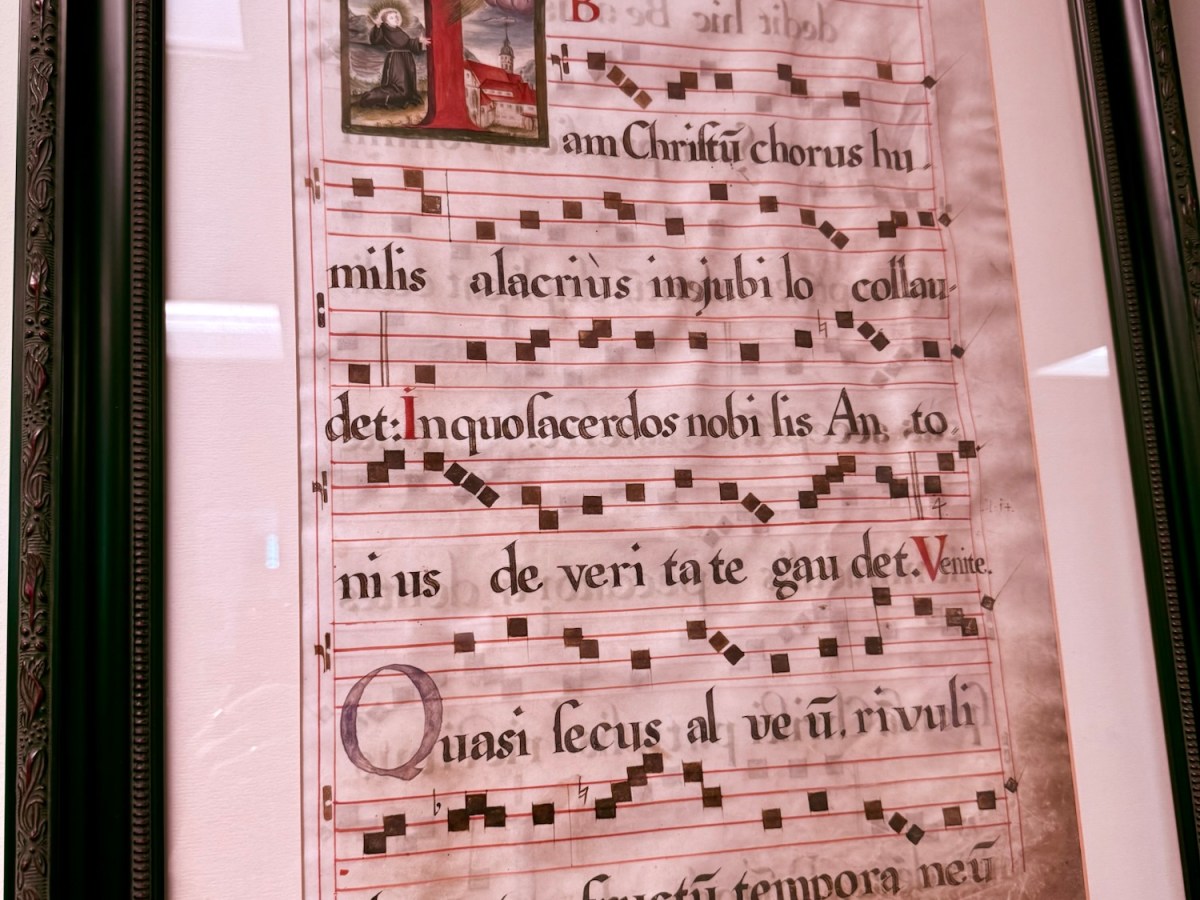 dedit hic Be
Iam Chriſtū chorus hu
milis alacriùs in jubilo collau-
det: In quo ſacerdos nobilis Anto
nius de veritate gaudet. Venite.
Quasi ſecus alveū. rivuli
fructū tempora neū